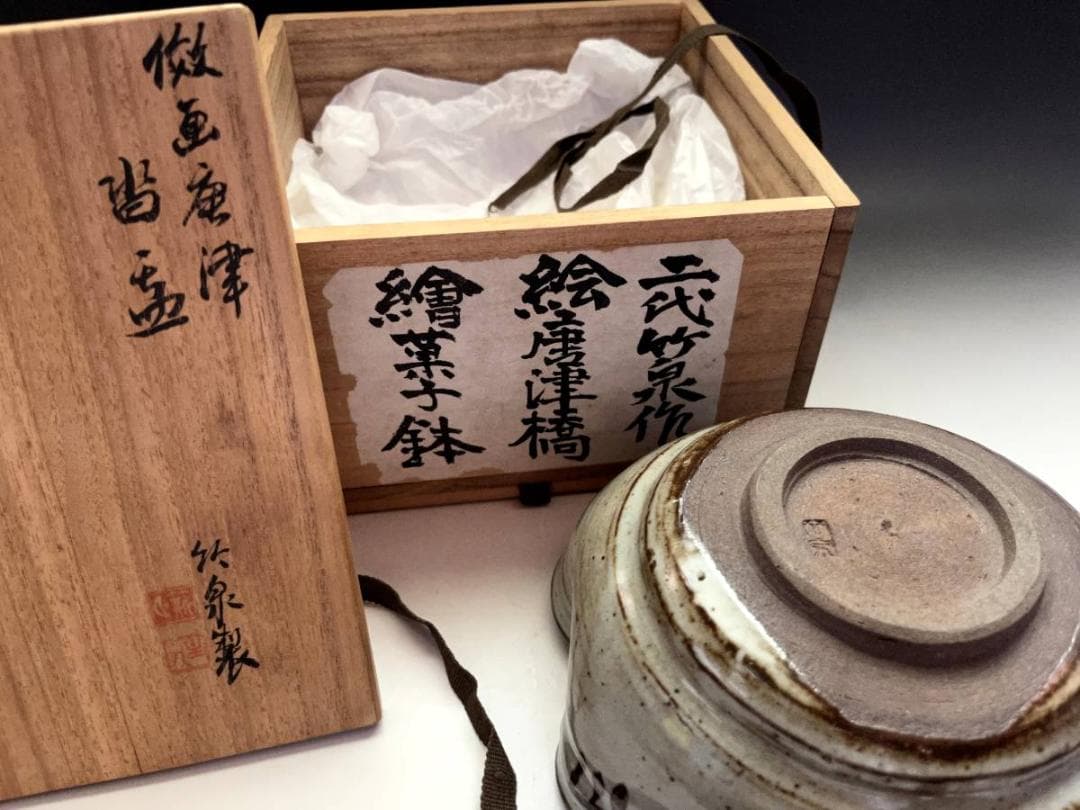 倣画唐津
沓盂
竹泉製
二代竹泉作
絵唐津橋
繪菓子鉢